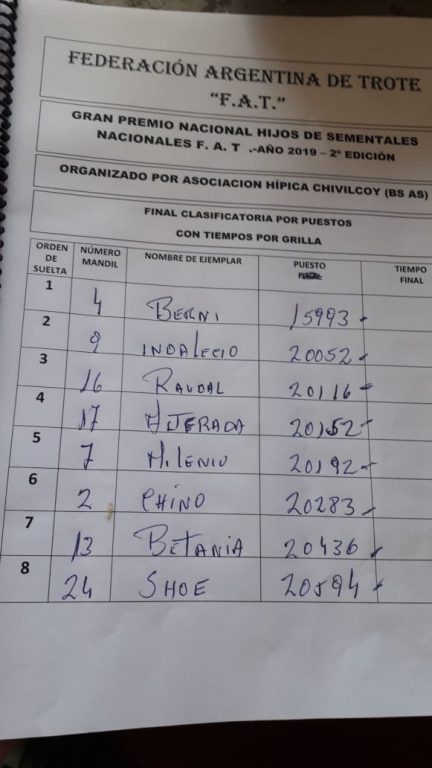 FEDERACIÓN ARGENTINA DE TROTE
"F.A.T."
GRAN PREMIO NACIONAL HIJOS DE SEMENTALES
NACIONALES F. A. T .-AÑO 2019 – 2º EDICIÓN
ORGANIZADO POR ASOCIACION HÍPICA CHIVILCOY (BS AS)
FINAL CLASIFICATORIA POR PUESTOS
CON TIEMPOS POR GRILLA
ORDEN DE SUELTA NÚMERO MANDIL NOMBRE DE EJEMPLAR PUESTO TIEMPO FINAL
1 4 BERNI 15993
2 9 INDALECIO 20052
3 16 RAUDAL 20116
4 17 20152
5 7 MILENIO 20192
6 2 CHINO 20283
7 13 BETANIA 20436
8 24 SHOE 20594